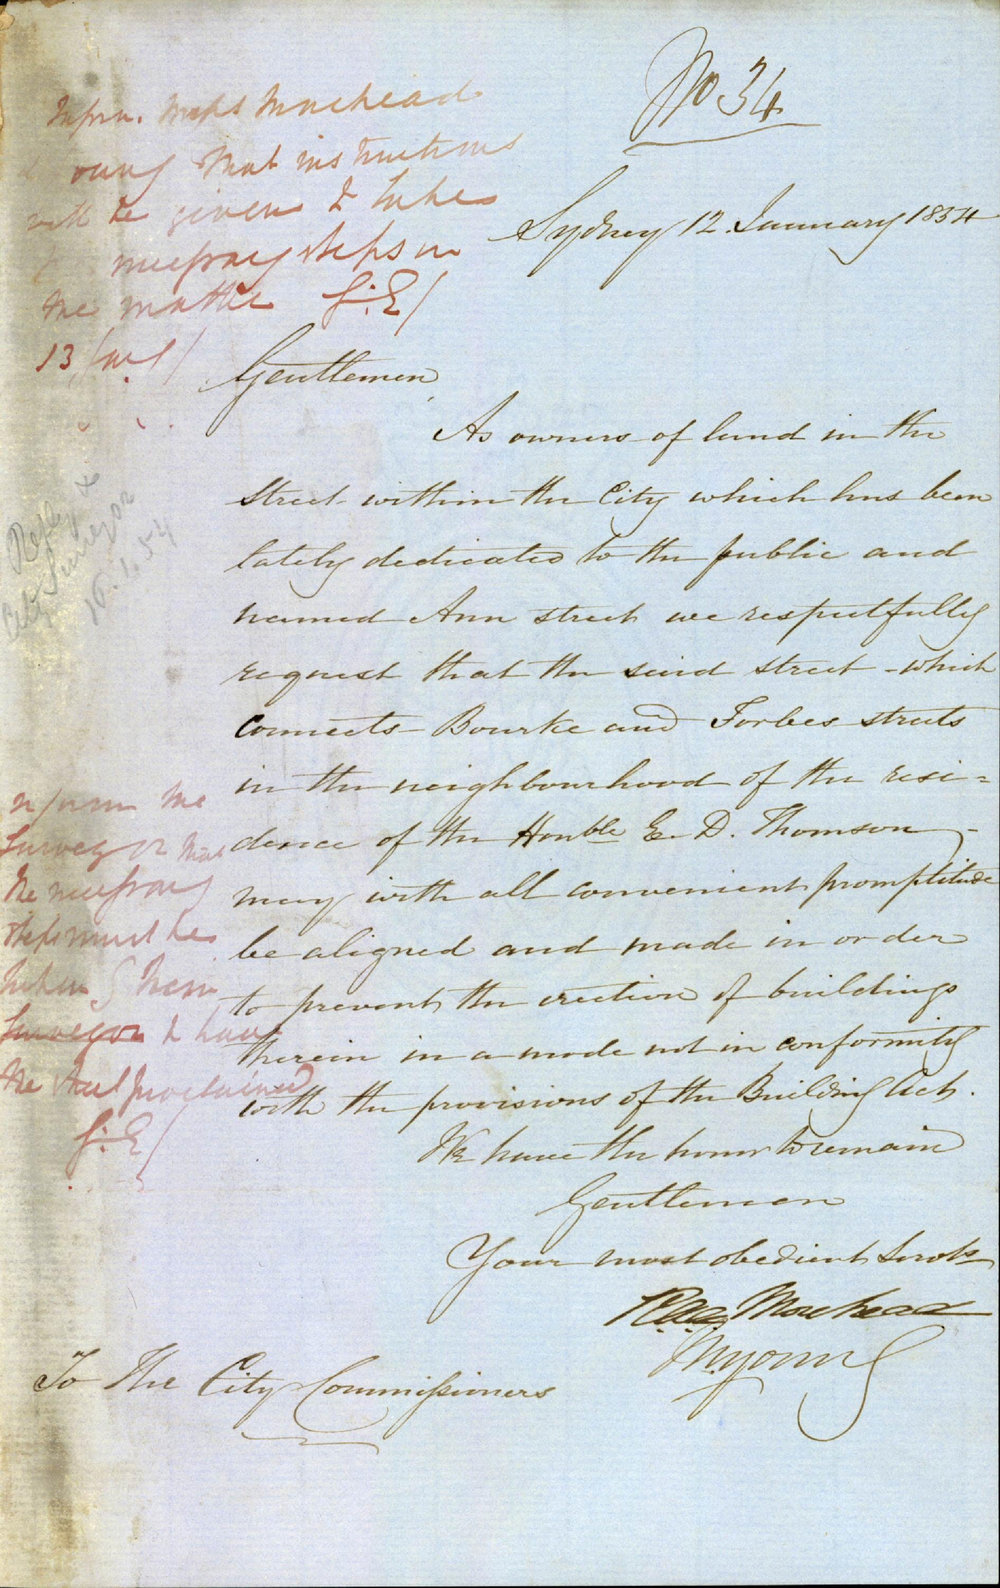 No 34
Inform Messrs Morehead
& Young that instructions
will be given to take
necessary steps in
the matter G.E/
13 Jany/
Sydney 12 January 1854
Gentlemen
As owners of land in the
Street within the City which has been
lately dedicated to the public and
named Ann street we respectfully
request that the said street - which
connects Bourke and Forbes streets
in the neighbourhood of the resi=
dence of the Honble E. D. Thomson -
may with all convenient promptitude
be aligned and made in order
to prevent the erection of buildings
therein in a mode not in conformity
with the provisions of the Building Act.
We have the honor to remain
Gentlemen
Your most obedient Servts
Morehead
M Young
To The City Commissioners
Refer to
City Surveyor
16.1.54
inform the
Surveyor that
the necessary
steps must be
taken by them
Surveyor to have
the street proclaimed
G.E/